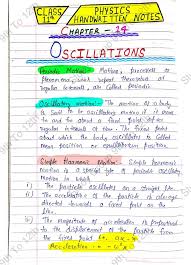 CLASS 11th
PHYSICS
HANDWRITTEN NOTES
CHAPTER - 14
OSCILLATIONS
Periodic Motion: Motion, processes or
phenomena, which repeat themselves at
regular intervals, are called periodic.
Oscillatory motion: The motion of a body
is said to be oscillatory motion if it moves
to and fro about a fixed point after
regular intervals of time. The fixed point
about which the body oscillates is called
mean position or equilibrium position.
Simple Harmonic Motion: Simple harmonic
motion is a special type of periodic oscillatory
motion in which
(i) The particle oscillates on a straight line.
(ii) The acceleration of the particle is always
directed towards a fixed point on the
line.
(iii) The magnitude of acceleration is proportional
to the displacement of the particle from
the fixed point i.e. a ∝ -x
Acceleration = -ω²x